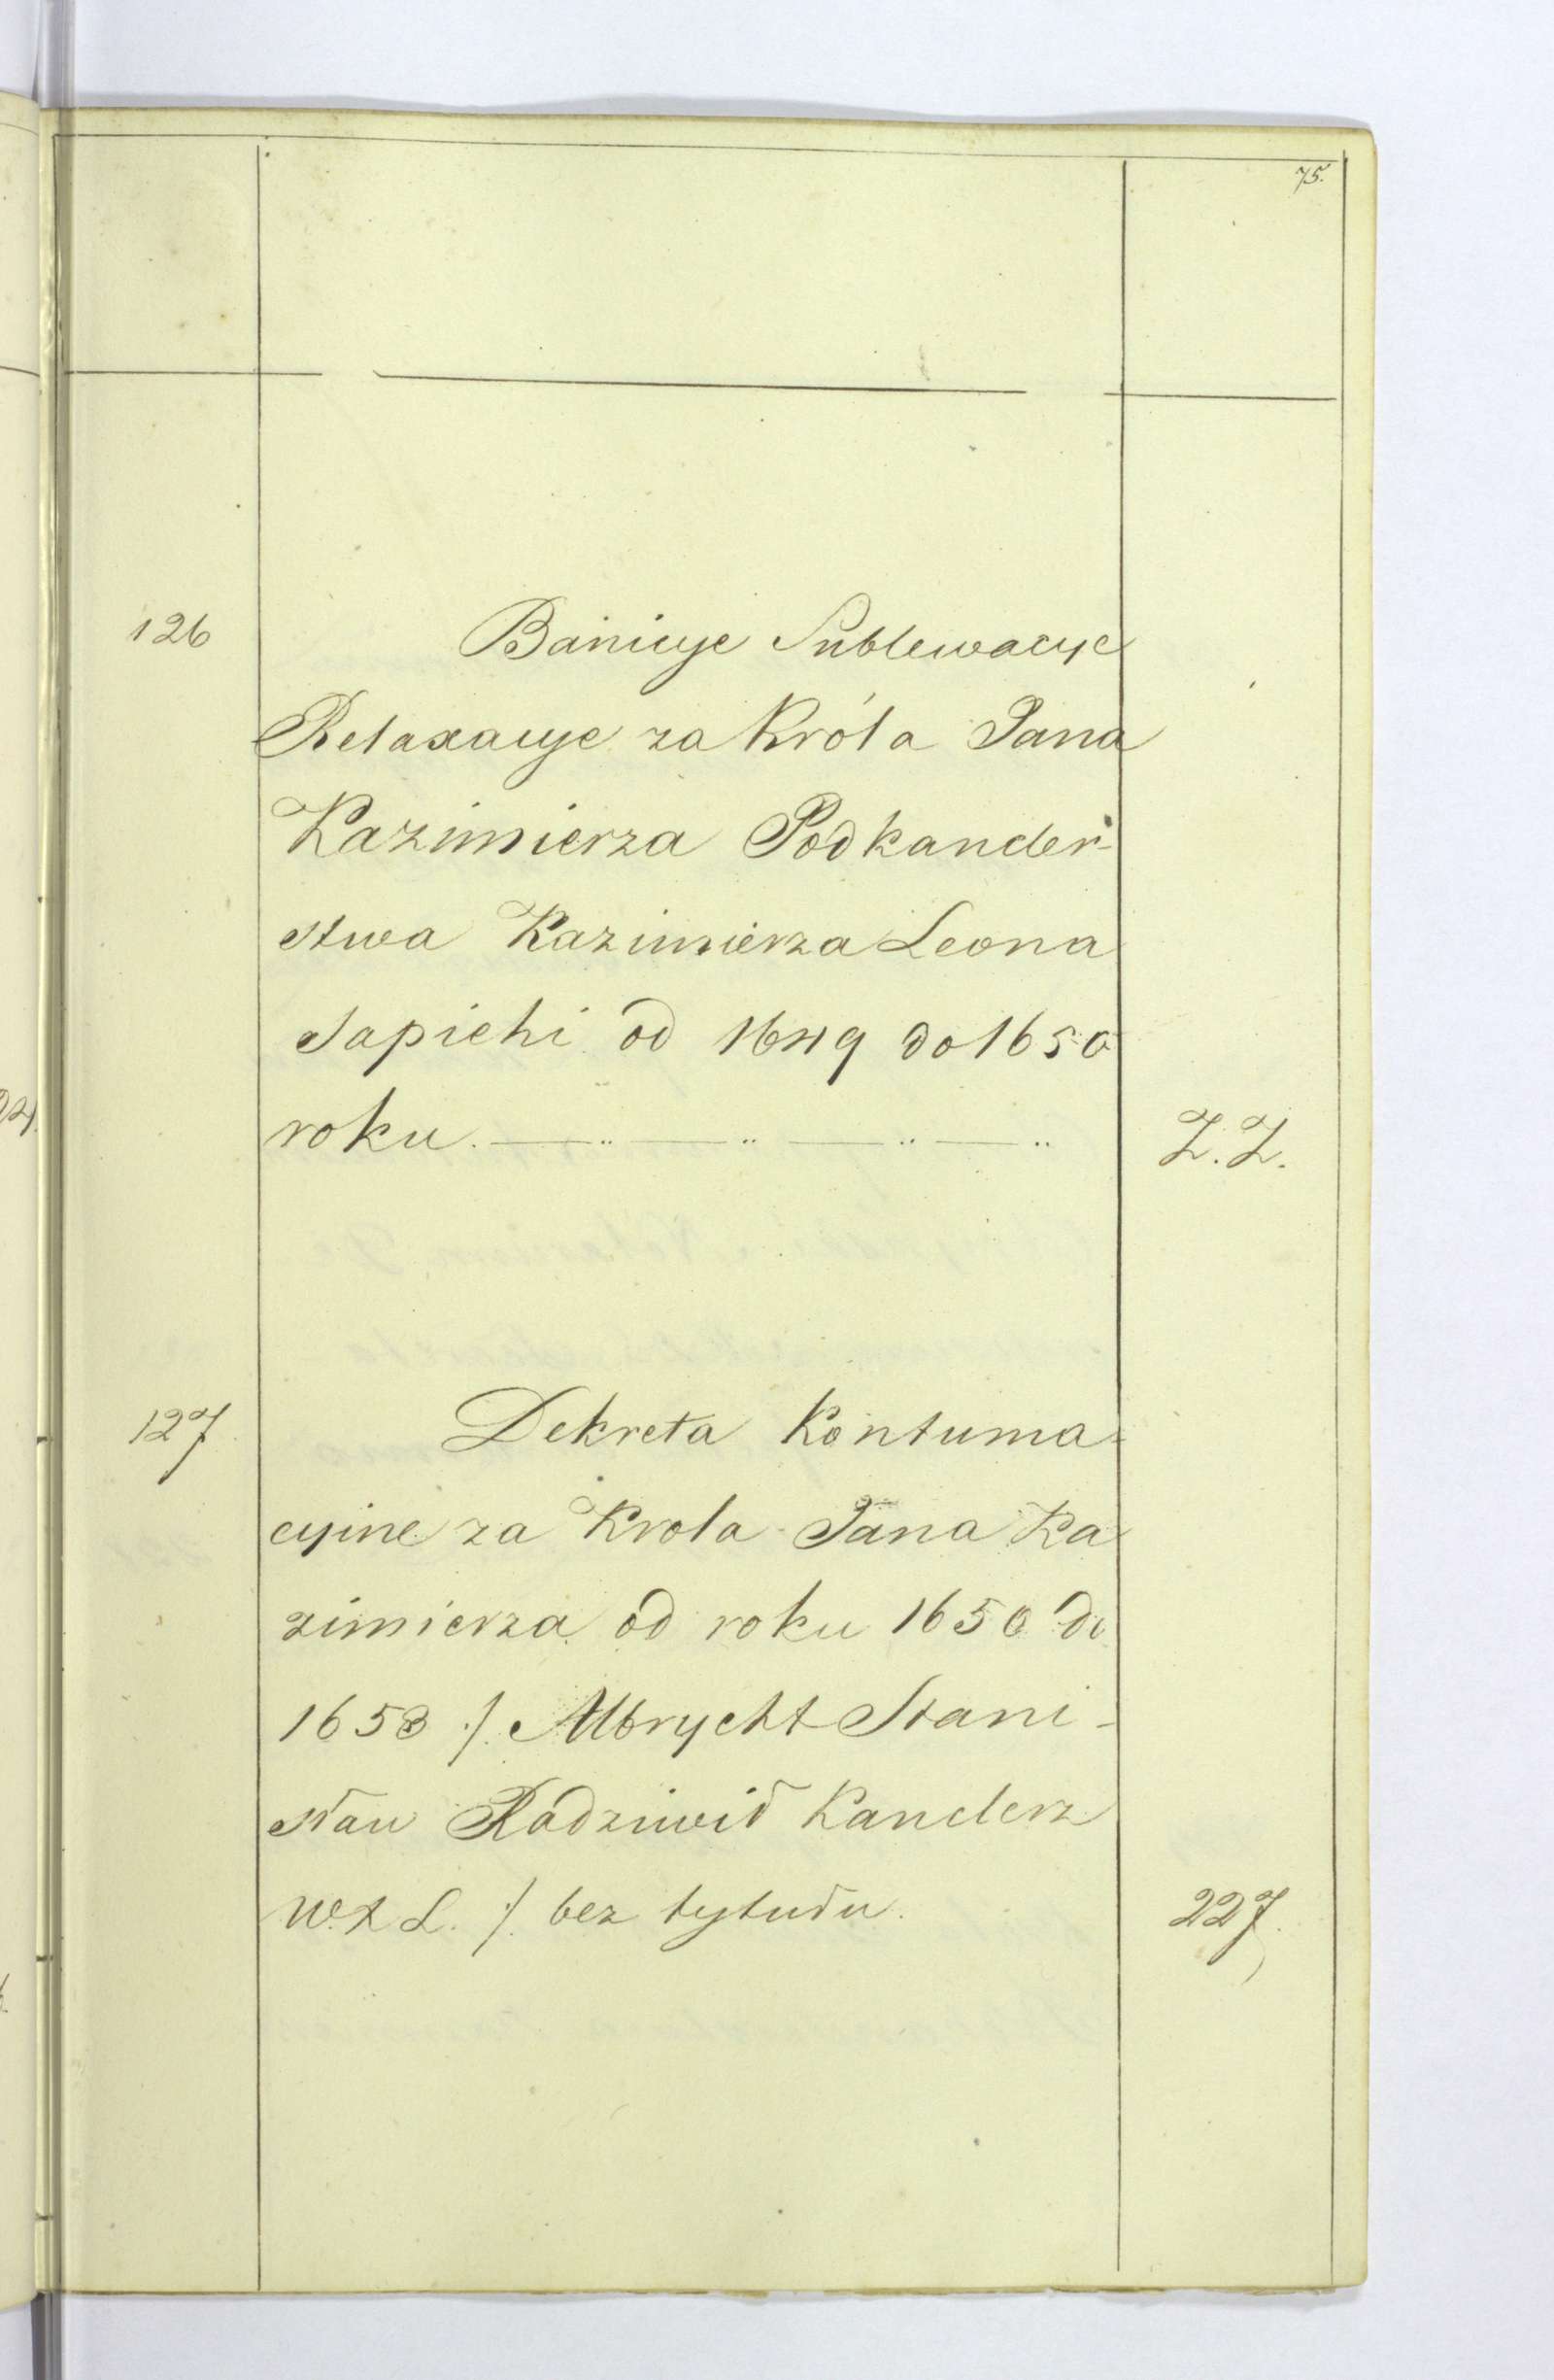 75.
126 Banicye Sublewacye
Relaxacye za Króla Jana
Kazimierza Podkancler-
stwa Kazimierza Leona
Sapiehi od 1649 do 1650
roku. Z. Z.
127 Dekreta Kontuma-
cyine za Krola Jana Ka
zimierza od roku 1650 do
1658 ./. Albrycht Stani-
sław Radziwił Kanclerz
W. X L. ./. bez tytułu. 227.